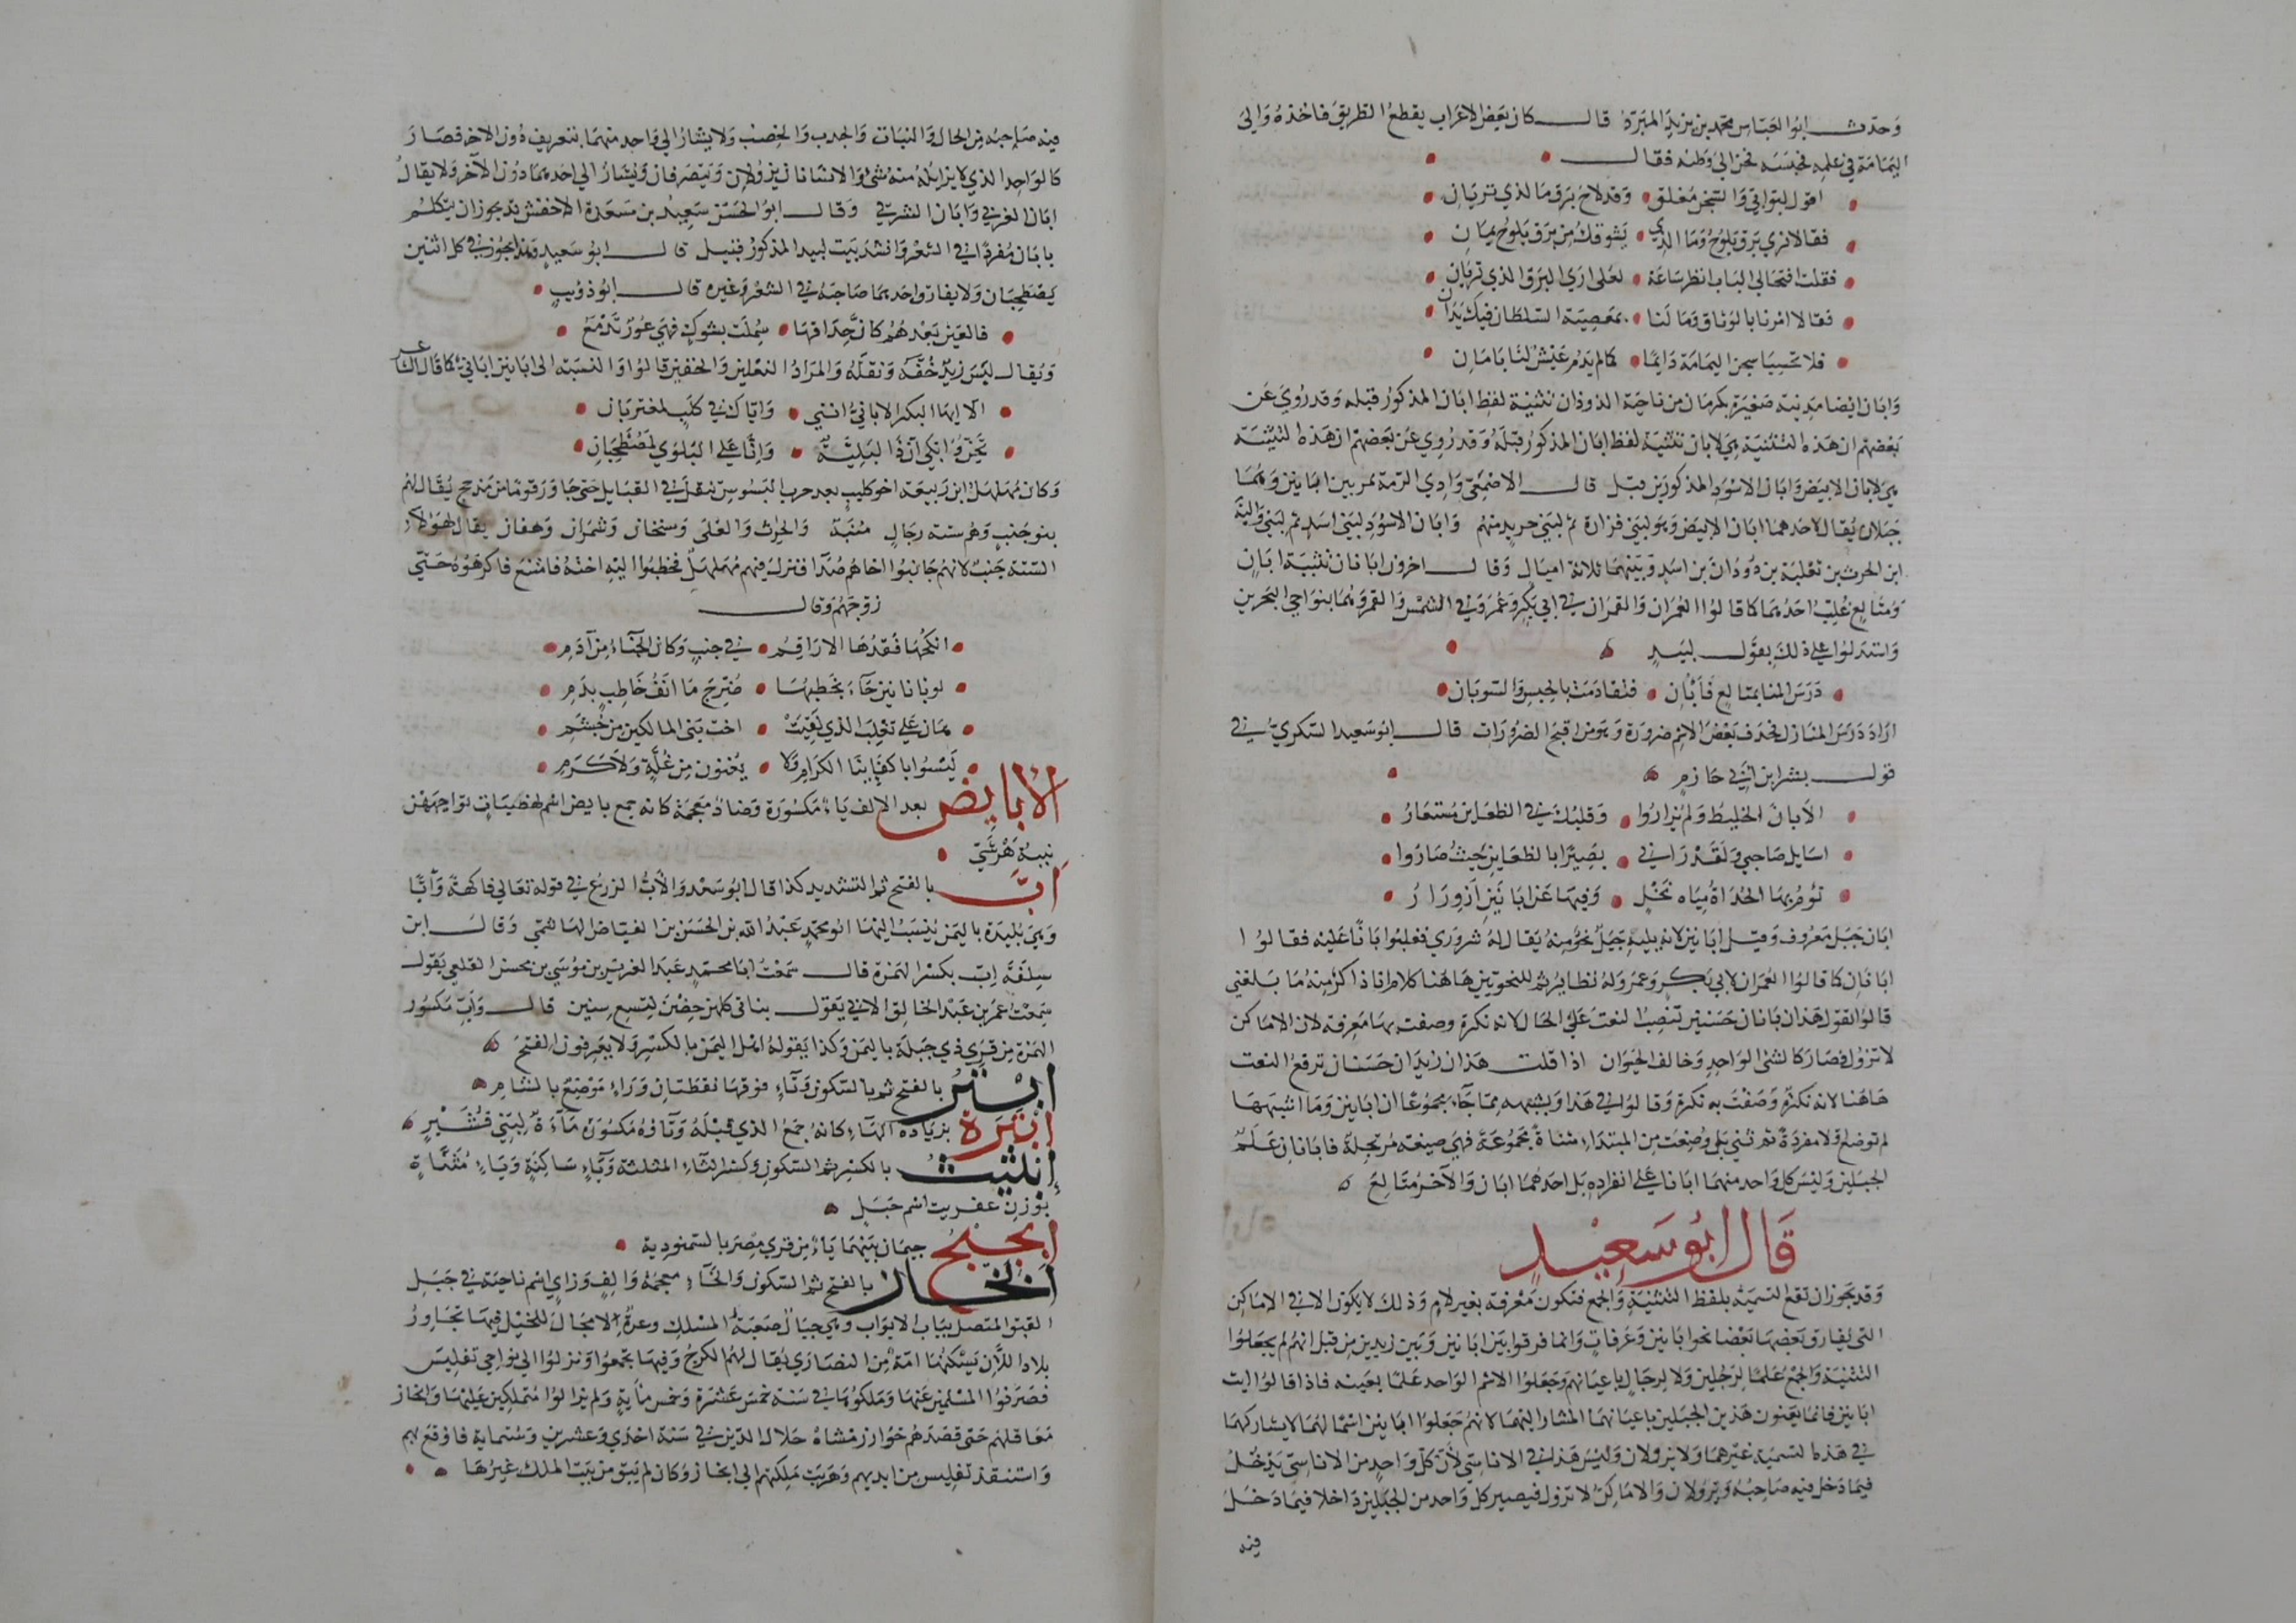 وحدث ابو العباس محمد بن يزيد المبرد قال كان بعض الاعراب يقطع الطريق فاخذه والي
اليمامة في عمله فحبسه فحن الى وطنه فقال
اقول لبوابي والسجن مغلق وقد لاح برق ما الذي تريان
فقالا نري برق يلوح وما الذي يشوقك من برق يلوح يمان
فقلت افتحا لي الباب انظر ساعة لعلي اري البرق الذي تريان
فقالا امرنا بالوثاق وما لنا بمعصية السلطان فيك يدان
فلا تحسبا سجن اليمامة دايما كما لم يدم عيش لنا بابان
وابان ايضا مدينة صغيرة بكرمان من ناحية الروذان تثنية لفظ ابان المذكور قبله وقد روي عن
بعضهم ان هذه التثنية هي لابان تثنية لفظ ابان المذكور قبله وقد روي عن بعضهم ان هذه التثنية
هي لابان الابيض وابان الاسود المذكورين قبل قال الاصمعي وادي الرمة يمر بين ابانين وهما
جبلان يقال لاحدهما ابان الابيض وهو لبني فزارة ثم لبني حريد منهم وابان الاسود لبني اسد ثم لبني والبة
ابن الحرث بن ثعلبة بن دودان بن اسد وبينهما ثلاثة اميال وقال اخرون ابانان تثنية ابان
ومتالع غلب احدهما كما قالوا العمران والقمران في ابي بكر وعمر وفي الشمس والقمر وهما بنواحي البحرين
واستدلوا على ذلك بقول لبيد
درس المنا بمتالع فابان فتقادمت بالحبس والسوبان
اراد درس المنازل فحذف بعض الاسم ضرورة وهو من اقبح الضرورات قال ابو سعيد السكري في
قول بشر ابن ابي حازم
الا بان الخليط ولم يزاروا وقلبك في الظعاين مستعار
اسايل صاحبي ولقد راني بصيرا بالظعاين حيث صاروا
تؤم بها الحداة مياه نخل وفيها عن ابانين ازورار
ابان جبل معروف وقيل ابانين لانه يليه جبل نحو منه يقال له شروري فغلبوا ابانا عليه فقالوا
ابانان كما قالوا العمران لابي بكر وعمر وله نظاير ثم للنحويين هاهنا كلام انا ذاكر منه ما بلغني
قالوا تقول هذان ابانان حسنين تنصب النعت على الحال لانه نكرة وصفت بها معرفة لان الاماكن
لا تزول فصار كالشي الواحد وخالف الحيوان اذا قلت هذان زيدان حسنان ترفع النعت
هاهنا لانه نكرة وصفت به نكرة وقالوا في هذا وشبهه مما جاء مجموعا ان ابانين وما اشبهها
لم توضع اولا مفردة ثم ثني بل وضعت من المبتداء مثناة مجموعة فهي صيغة مرتجلة فابانان علم
الجبلين وليس كل واحد منهما ابانا على انفراده بل احدهما ابان والآخر متالع
قال ابو سعيد
وقد يجوز ان تقع التسمية بلفظ التثنية والجمع فتكون معرفة بغير لام وذلك لا يكون الا في الاماكن
التي لا يفارق بعضها بعضا نحوا ابانين وعرفات وانما فرقوا بين ابانين وبين زيدين من قبل انهم لم يجعلوا
التثنية والجمع علما لرجلين ولا لرجال باعيانهم وجعلوا الاسم الواحد علما بعينه فاذا قالوا ايت
ابانين فانما يعنون هذين الجبلين باعيانهما المشار اليهما لانهم جعلوا ابانين اسما لهما لا يشاركهما
في هذه التسمية غيرهما ولا يزولان وليس هذا في الاناسي لان كل واحد من الاناسي يدخل
فيما دخل فيه صاحبه ويزولان والاماكن لا تزول فيصير كل واحد من الجبلين داخلا فيما دخل
فيه
فيه صاحبه من الحال والنبات والجدب والخصب ولا يشار الي واحد منهما بتعريف دون الاخر فصار
كالواحد الذي لا يزايله منه شئ والانسانان يزولان ويتصرفان ويشار الي احدهما دون الآخر ولا يقال
ابان الغربي وابان الشرقي وقال ابو الحسن سعيد بن مسعدة الاخفش قد يجوز ان يتكلم
بابان مفردا في الشعر وانشد بيت لبيد المذكور فبيل قال ابو سعيد وهذا يجوز في كل اثنين
يصطحبان ولا يفارق واحدهما صاحبه في الشعر وغيره قال ابو ذويب
فالعين بعدهم كان حداقها سملت بشوك فهي عور تدمع
ويقال لبس زيد خفه ونعله والمراد النعلين والخفين قالوا والنسبة الى ابانين اباني كما قال الشاعر
الا ايها البكر الاباني انني واياك في كلب لمغتربان
تحن وابكي ان ذا لبلية وانا على البلوي لمصطحبان
وكان مهلهل ابن ربيعة اخو كليب بعد حرب البسوس تنقل في القبايل حتى جاور قوما من مذحج يقال لهم
بنو جنب وهم ستة رجال منبه والحرث والعلى وسنحان وشمران وهفان يقال لهولاء
الستة جنب لانهم جانبوا اخاهم صدا فنزل فيهم مهلهل فخطبوا اليه اخته فامتنع فاكرهوه حتى
زوجهم وقال
انكحها فقدها الاراقم في جنب وكان الحباء من آدم
لو بابانين جاء يخطبها ضرج ما انف خاطب بدم
هان على تغلب الذي لقيت اخت بني المالكين من جشم
ليسوا باكفاينا الكرام ولا يغنون من غلة ولا كرم
الأبايض بعد الالف ياء مكسورة وضاد معجمة كانه جمع بايض اسم لهضبات تواجههن
ثنية هرشي
اب بالفتح ثم التشديد كذا قال ابو سعد والاب الزرع في قوله تعالي فاكهة وابا
وهي بليدة باليمن ينسب اليها ابو محمد عبد الله بن الحسن بن الفياض الهاشمي وقال ابن
سلفة اب بكسر الهمزة قال سمعت ابا محمد عبد العزيز بن موسي بن محسن القلعي يقول
سمعت عمر بن عبد الخالق الابي يقول بناتي كلهن حضن لتسع سنين قال واب مكسور
الهمزة من قري ذي جبلة باليمن وكذا يقوله اهل اليمن بالكسر ولا يعرفون الفتح
ابتر بالفتح ثم بالسكون وتاء فوقها نقطتان وراء موضع بالشام
ابترة بزيادة الهاء كانه جمع الذي قبله وتاؤه مكسورة ماءة لبني قشير
ابثيث بالكسر ثم السكون وكسر الثاء المثلثة وياء ساكنة وياء مثناة
بوزن عفريت اسم جبل
ابجيج جيمان بينهما ياء من قري مصر بالسمنودية
ابخاز بالفتح ثم السكون والخاء معجمة والف وزاي اسم ناحية في جبل
القبق المتصل بباب الابواب وهي جبال صعبة المسلك وعرة لا مجال للخيل فيها تجاور
بلاد اللان يسكنها امة من النصاري يقال لهم الكرج وفيها تجمعوا ونزلوا الي نواحي تفليس
فصرفوا المسلمين عنها وملكوها في سنة خمس عشرة وخمس مأية ولم يزالوا متملكين عليها وابخاز
معاقلهم حتى قصدهم خوارزمشاه جلال الدين في سنة احدي وعشرين وستماية فاوقع بهم
واستنقذ تفليس من ايديهم وهربت ملكتهم الي ابخاز وكان لم يبق من بيت الملك غيرها